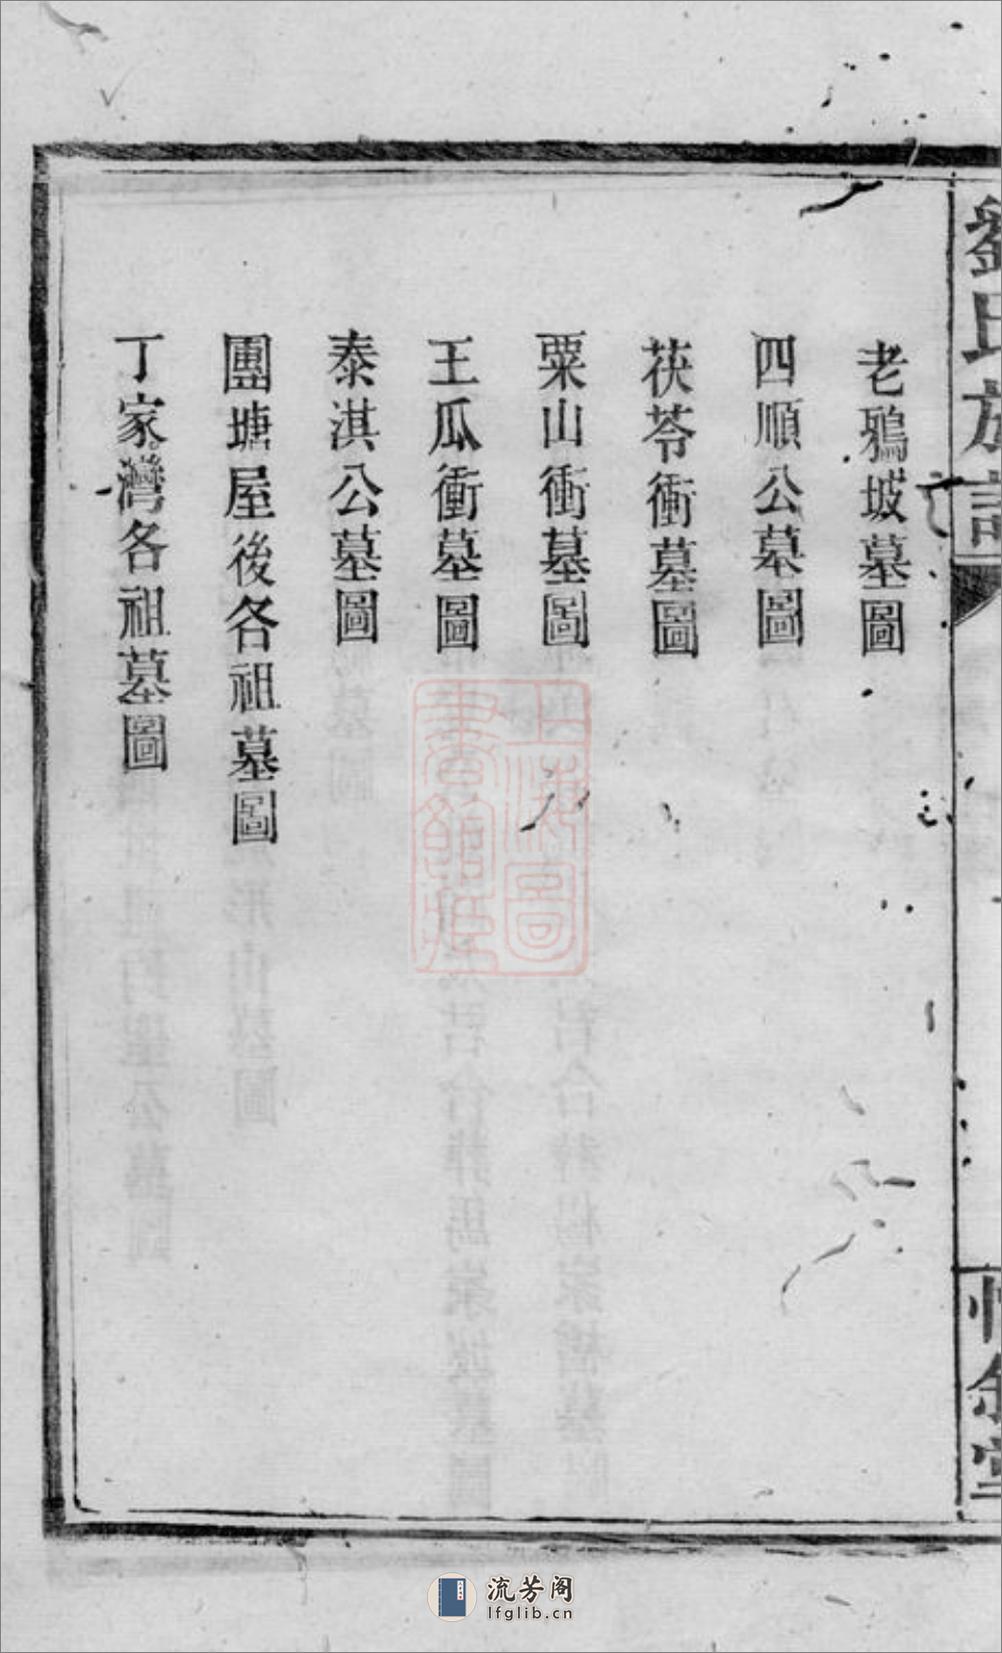 老鴉坡墓圖
四順公墓圖
茯苓衝墓圖
粟山衝墓圖
王瓜衝墓圖
泰淇公墓圖
團塘屋後各祖墓圖
丁家灣各祖墓圖
劉氏族譜
惇敘堂
上海圖書館藏
流芳阁
lfglib.cn